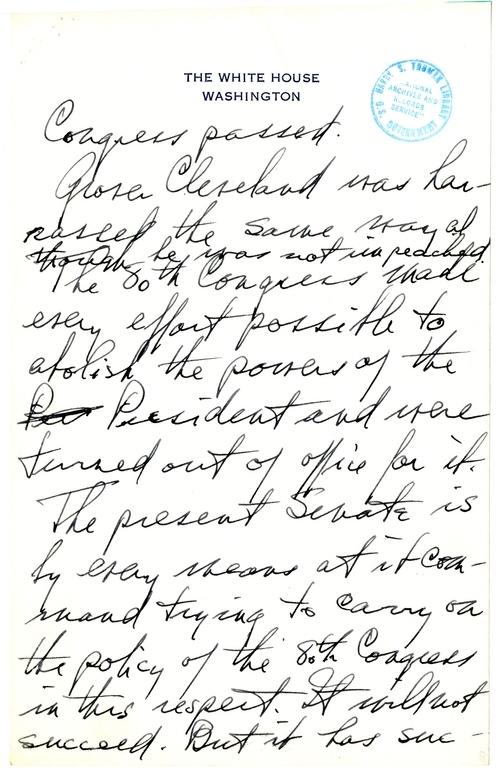 THE WHITE HOUSE
WASHINGTON
HARRY S. TRUMAN LIBRARY
"NATIONAL
ARCHIVES AND
RECORDS
SERVICE"
U.S. GOVERNMENT
Congress passed.
Grover Cleveland was har-
rassed the same way al
though he was not impeached.
The 80th Congress made
every effort possible to
abolish the powers of the
President and were
turned out of office for it.
The present Senate is
by every means at it com-
mand trying to carry on
the policy of the 80th Congress
in this respect. It will not
succeed. But it has suc-